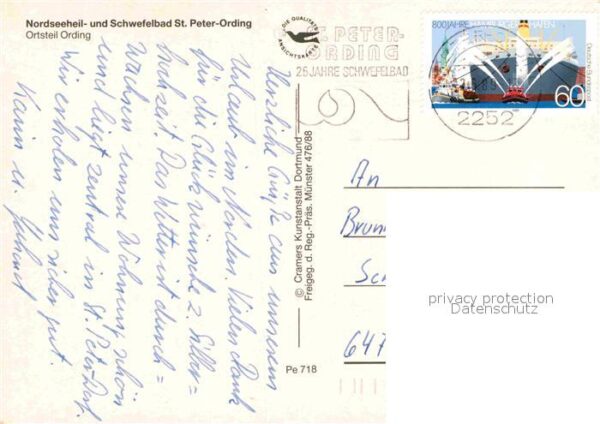 Nordseeheil- und Schwefelbad St. Peter-Ording
Ortsteil Ording
Herzliche Grüße aus unserem
Urlaub im Norden. Vielen Dank
für die Glückwünsche z. Silber=
hochzeit. Das Wetter ist durch=
wachsen unsere Wohnung schön
und liegt zentral in St. Peter-Dorf.
Wir erholen uns sehr gut.
Karin u. Gerhard
DIE QUALITÄTS
ANSICHTSKARTE
© Cramers Kunstanstalt Dortmund
Freigeg. d. Reg.-Präs. Münster 476/88
Pe 718
ST. PETER-
ORDING
25 JAHRE SCHWEFELBAD
800 JAHRE HAMBURGER HAFEN
Deutsche Bundespost
60
2252
An
Sc
647
privacy protection
Datenschutz